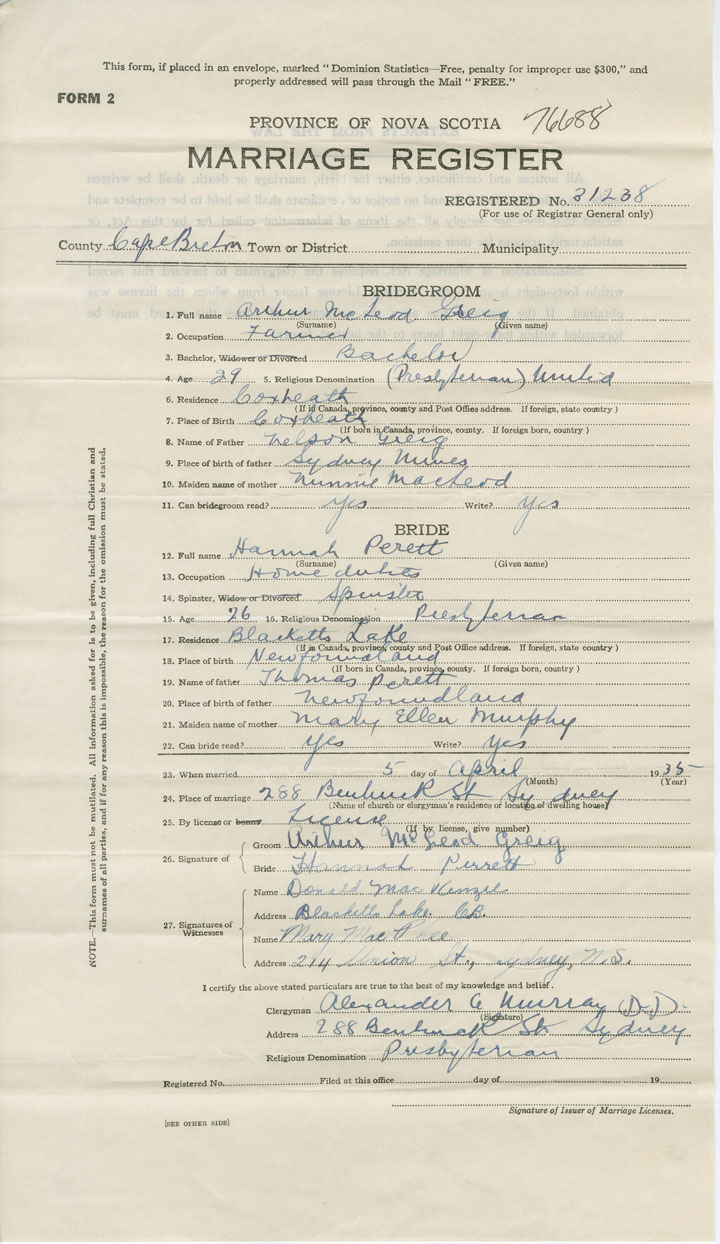 This form, if placed in an envelope, marked "Dominion Statistics—Free, penalty for improper use $300," and
properly addressed will pass through the Mail "FREE."
FORM 2
PROVINCE OF NOVA SCOTIA 76688
MARRIAGE REGISTER
REGISTERED No. 31238
(For use of Registrar General only)
County Cape Breton Town or District Municipality
BRIDEGROOM
1. Full name Arthur McLeod Greig
(Surname) (Given name)
2. Occupation Farmer
3. Bachelor, Widower or Divorced Bachelor
4. Age 29 5. Religious Denomination (Presbyterian) United
6. Residence Coxheath
(If in Canada, province, county and Post Office address. If foreign, state country)
7. Place of Birth Coxheath
(If born in Canada, province, county. If foreign born, country)
8. Name of Father Nelson Greig
9. Place of birth of father Sydney Mines
10. Maiden name of mother Minnie MacLeod
11. Can bridegroom read? yes Write? yes
BRIDE
12. Full name Hannah Perett
(Surname) (Given name)
13. Occupation Home duties
14. Spinster, Widow or Divorced Spinster
15. Age 26 16. Religious Denomination Presbyterian
17. Residence Blacketts Lake
(If in Canada, province, county and Post Office address. If foreign, state country)
18. Place of birth Newfoundland
(If born in Canada, province, county. If foreign born, country)
19. Name of father Thomas Perett
20. Place of birth of father Newfoundland
21. Maiden name of mother Mary Ellen Murphy
22. Can bride read? yes Write? yes
23. When married 5 day of April 1935
(Month) (Year)
24. Place of marriage 288 St Sydney
(Name of church or clergyman's residence or location of dwelling house)
25. By license or banns License
(If by license, give number)
26. Signature of Groom Arthur McLeod Greig
Bride Hannah Perrett
27. Signatures of Witnesses Name Donald MacKenzie
Address Blacketts Lake C.B.
Name Mary MacPhee
Address 214 Union St., Sydney, N.S.
I certify the above stated particulars are true to the best of my knowledge and belief.
Clergyman Alexander Murray (D.D.)
(Signature)
Address 288 St Sydney
Religious Denomination Presbyterian
Registered No. Filed at this office day of 19
Signature of Issuer of Marriage Licenses.
[SEE OTHER SIDE]
NOTE.—This form must not be mutilated. All information asked for is to be given, including full Christian and
surnames of all parties, and if for any reason this is impossible, the reason for the omission must be stated.